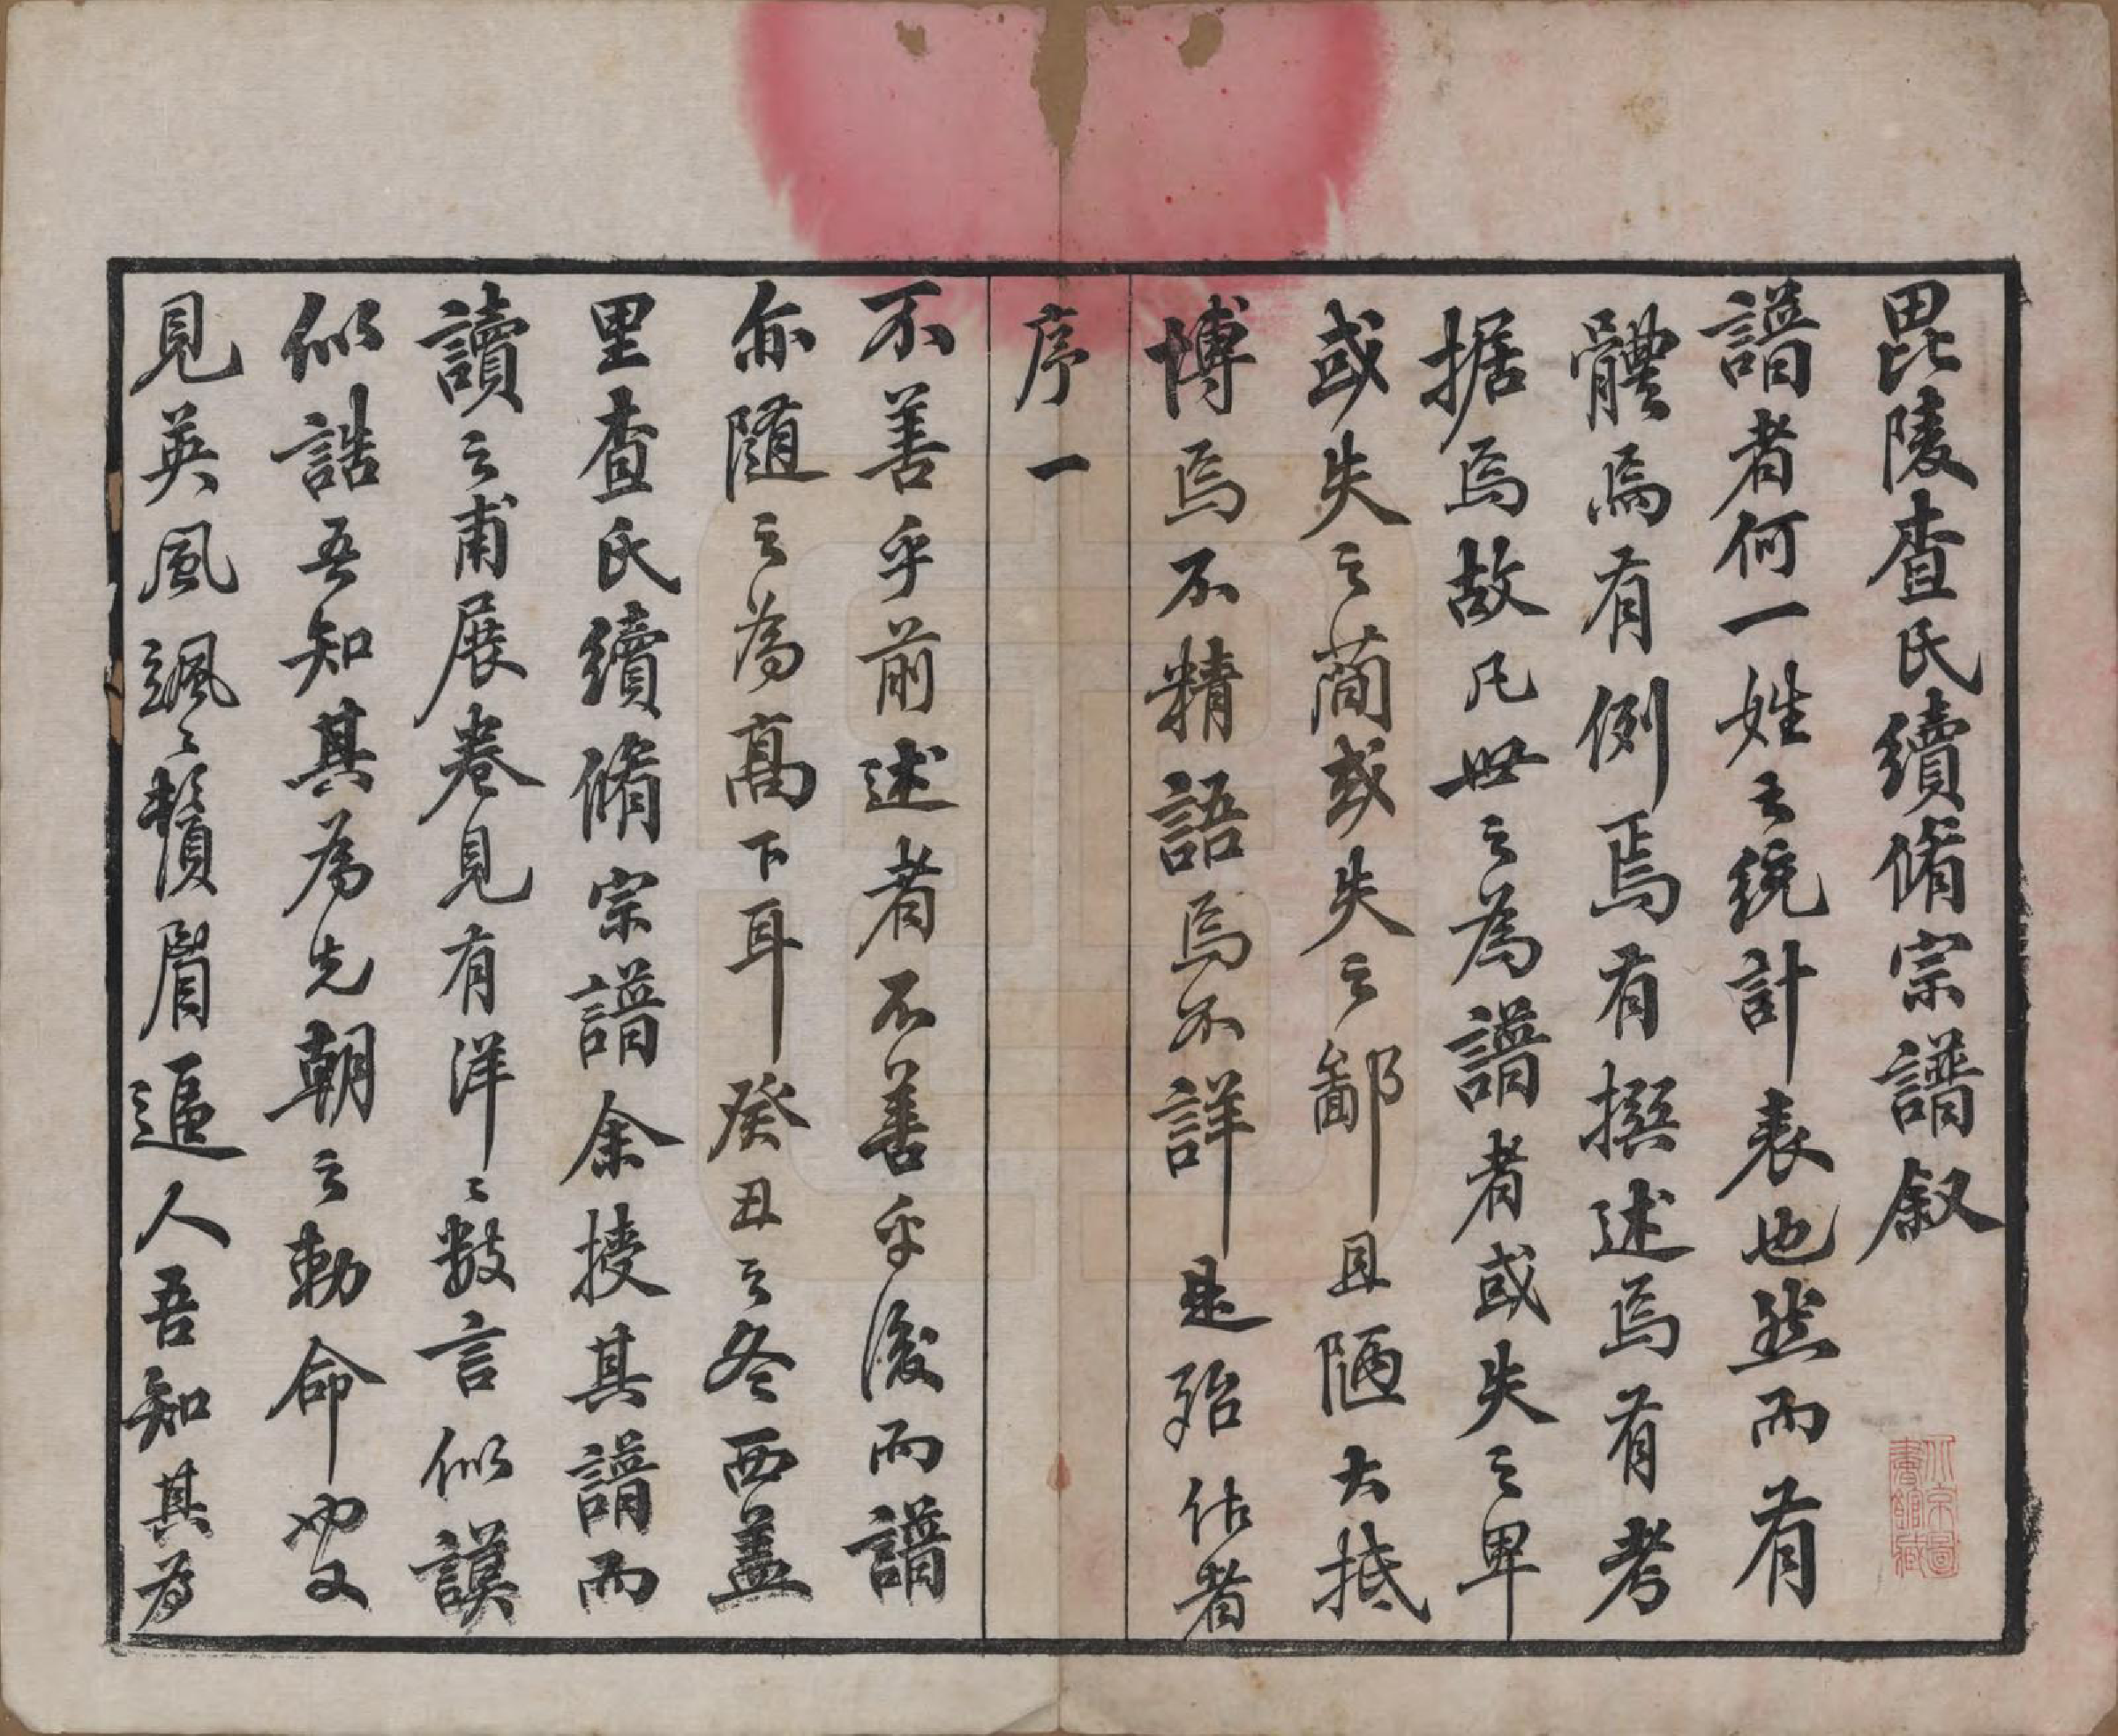 毘陵查氏續脩宗譜叙
譜者何一姓之統計表也然而有
體焉有例焉有撰述焉有考
据焉故凡世之為譜者或失之卑
或失之蕳或失之鄙且陋大抵
博焉不精語焉不詳是殆作者
序一
不善乎前述者不善乎後而譜
亦隨之為髙下耳癸丑之冬西蓋
里查氏續脩宗譜余授其譜而
讀之甫展卷見有洋〻數言似謨
似誥吾知其為先朝之勅命也又
見英風颯〻鬚眉逼人吾知其為
北京圖書館藏